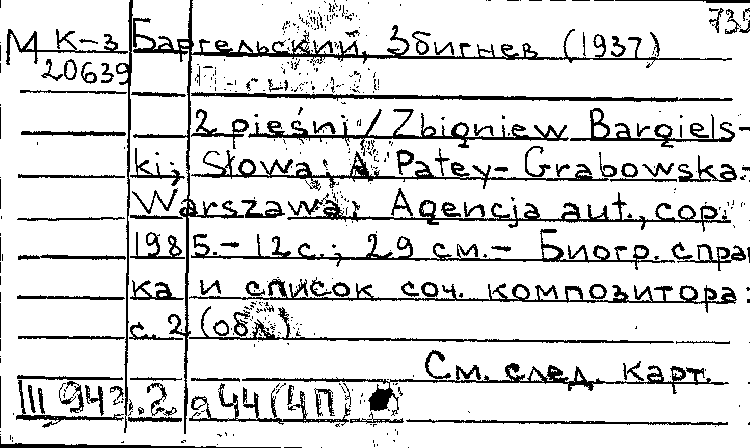 739
М К-3 Баргельский, Збигнев (1937)
20639
2 pieśni / Zbigniew Bargiels-
ki; Słowa: A. Patey-Grabowska.-
Warszawa: Agencja aut., cop.
1985.- 12 с.; 29 см.- Биогр. справ
ка и список соч. композитора:
с. 2 (обл.)
См. след. карт.
III 943.2 я 44 (4П)